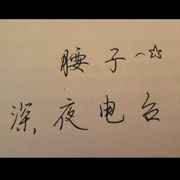 腰子~☆
深夜电台